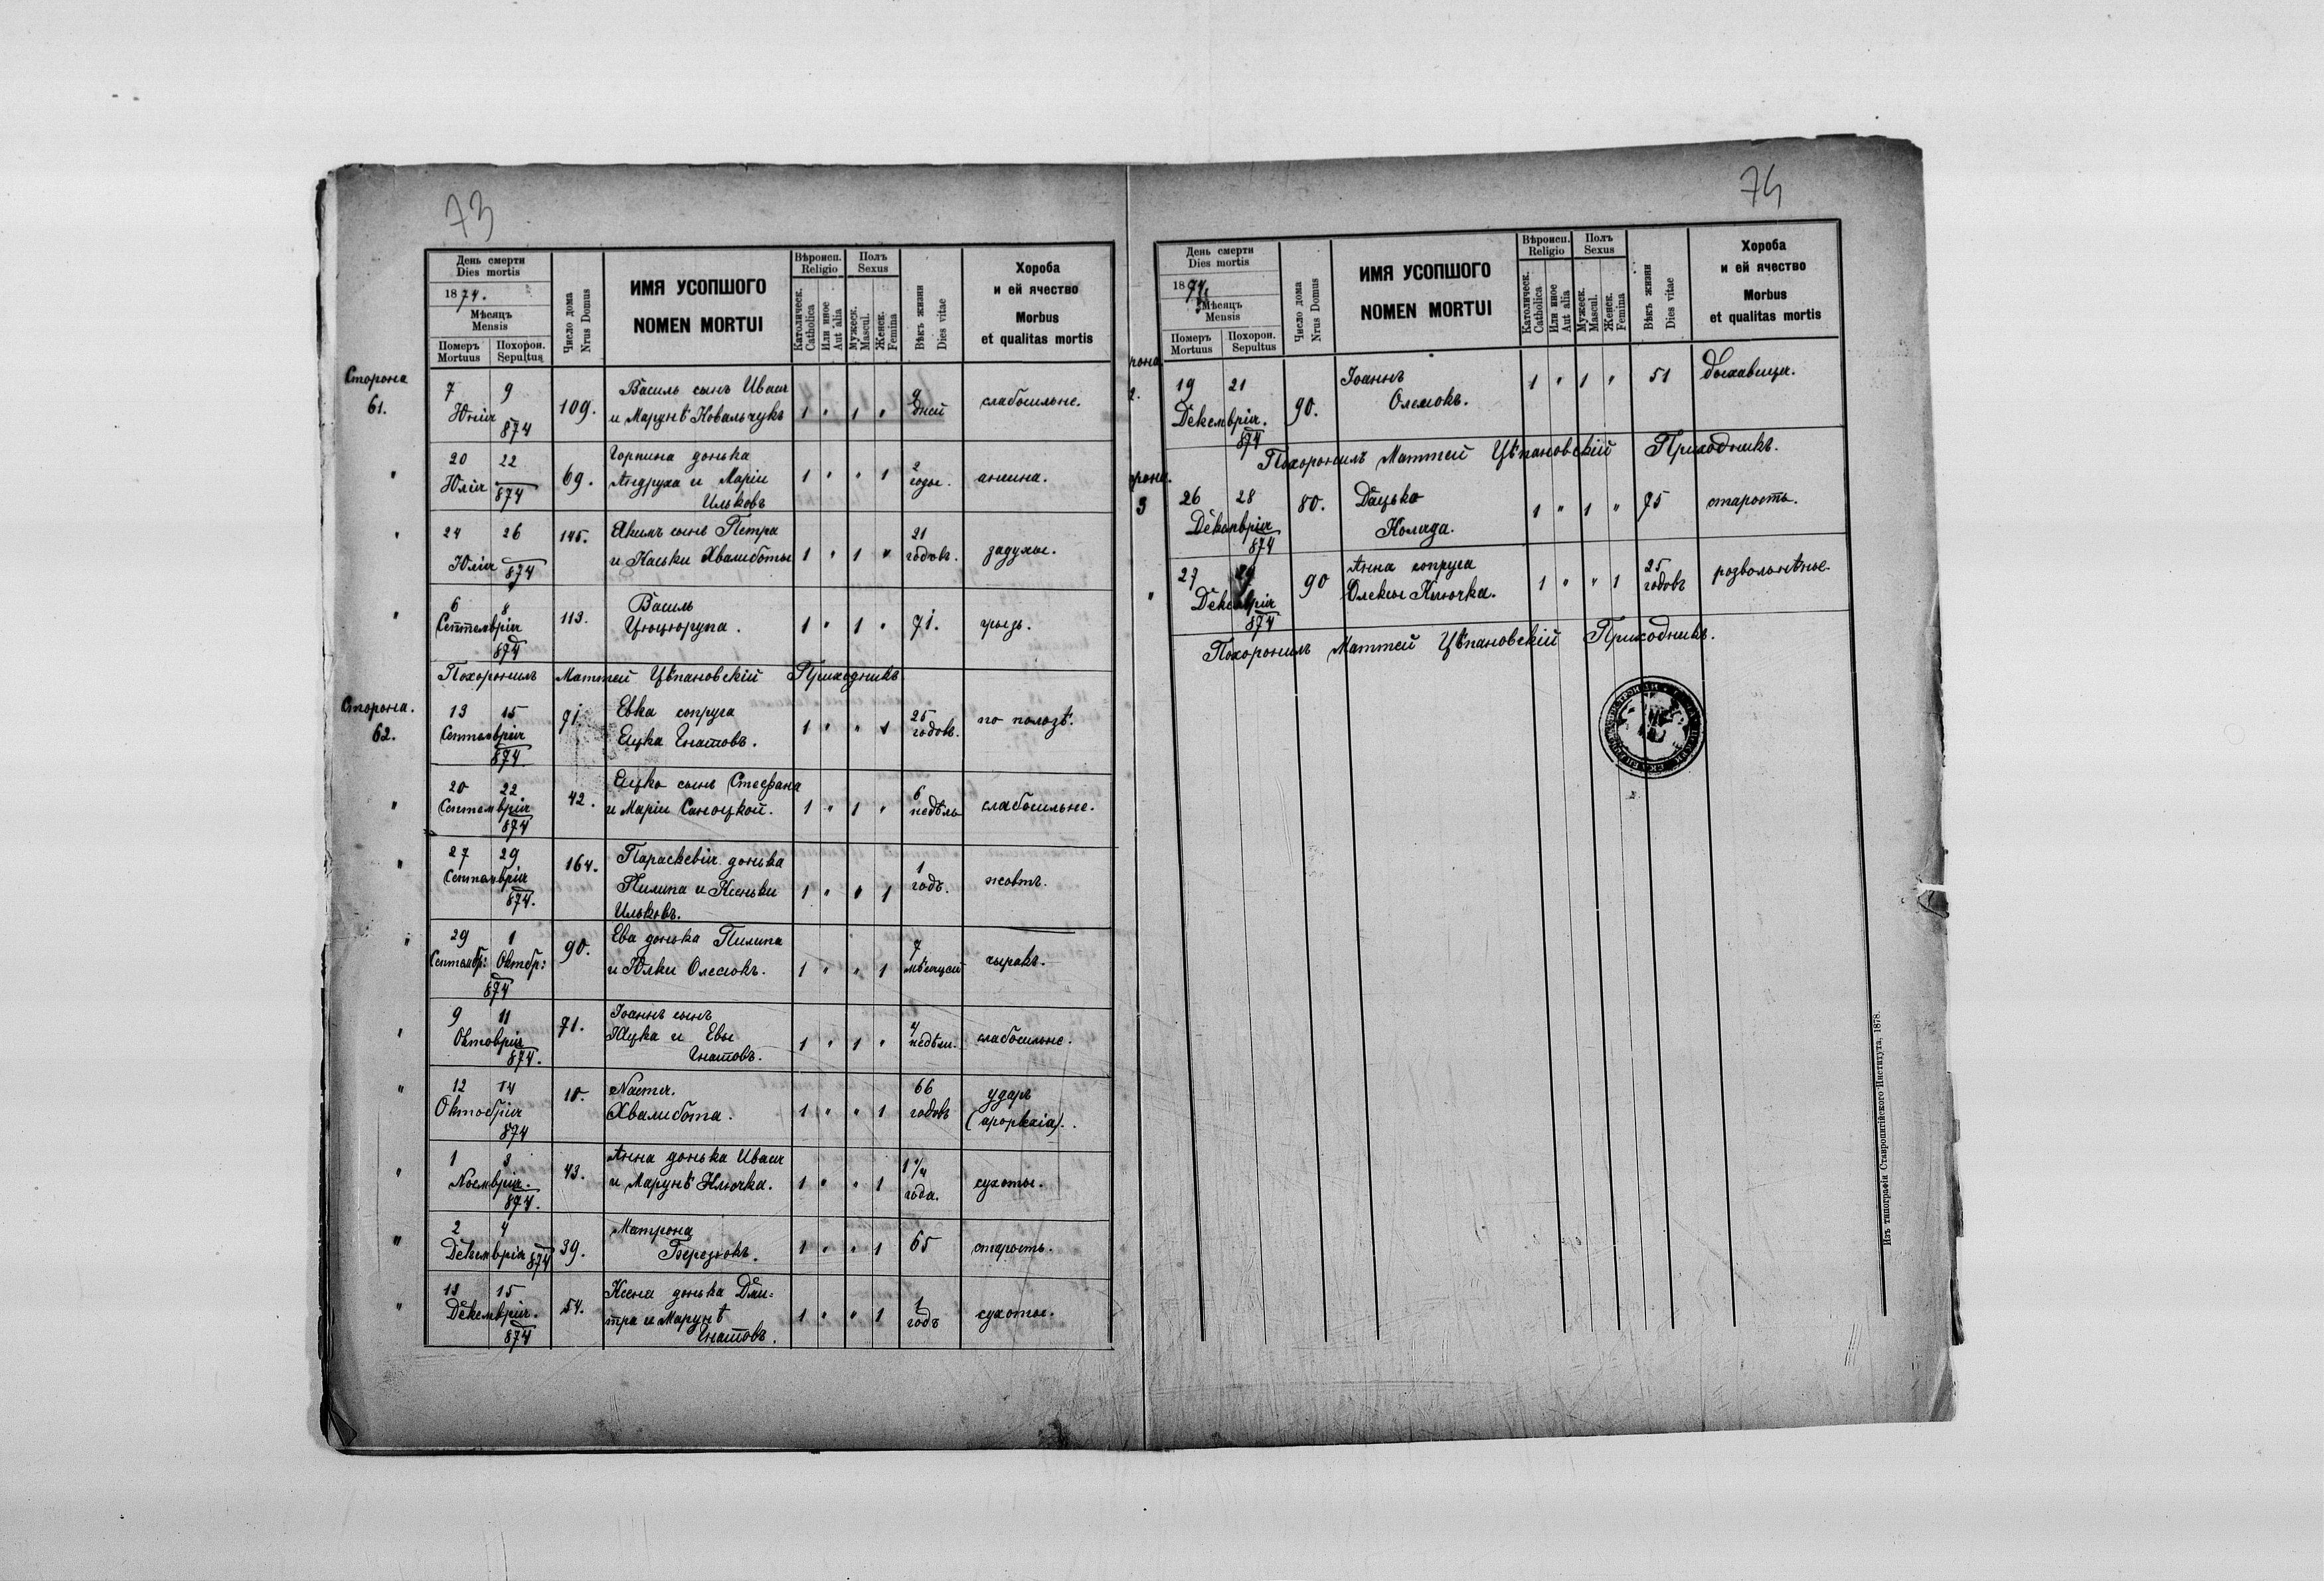 73
День смерти
Dies mortis
1874.
Мѣсяцъ
Mensis
Померъ
Mortuus
Похорон.
Sepultus
Число дома
Nrus Domus
ИМЯ УСОПШОГО
NOMEN MORTUI
Вѣроисп.
Religio
Католическ.
Catholica
Или иное
Aut alia
Полъ
Sexus
Мужеск.
Mascul.
Женск.
Femina
Вѣкъ жизни
Dies vitae
Хороба
и ей ячество
Morbus
et qualitas mortis
Сторона
61.
7 9
Юнія 874
109.
Василь сынъ Ивася
и Марунѣ Ковальчукъ
1 " 1 "
9
дней
слабосильне.
"
20 22
Юлія 874
69.
Горпина донька
Андруха и Маріи
Ильковъ
1 " " 1
2
годы.
ангина.
"
24 26
Юлія 874
145.
Якимъ сынъ Петра
и Каськи Хвалиботы
1 " 1 "
21
годовъ.
задухы.
"
6 8
Септемврія
874
113.
Василь
Цюцюрупа.
1 " 1 "
71.
грызь.
Похоронилъ Маттей Цѣпановскій Приходникъ
Сторона.
62.
13 15
Септемврія
874.
71
Евка супруга
Яцка Гнатовъ.
1 " " 1
25
годовъ.
по пологѣ.
"
20 22
Септемврія
874
42.
Яцко сынъ Стефана
и Маріи Саноцкой.
1 " 1 "
6
недѣль
слабосильне.
"
27 29
Септемврія
874.
164.
Параскевія донька
Пилипа и Ксеньки
Ильковъ.
1 " " 1
1
годъ.
жовть.
"
29 1
Септембр: Октобр:
874
90.
Ева донька Пилипа
и Юлки Олесюкъ.
1 " " 1
7
мѣсяцей
чыракъ.
"
9 11
Октоврія
874.
71.
Іоаннъ сынъ
Яцка и Евы
Гнатовъ.
1 " 1 "
4
недѣли.
слабосильне.
"
12 14
Октобрія
874
18.
Настя.
Хвалибота.
1 " " 1
66
годовъ
ударъ
(apoplexia).
"
1 3
Ноемврія.
874.
43.
Анна донька Ивася
и Марунѣ Ключка.
1 " " 1
1 1/4
года.
сухоты.
"
2 4
Декемврія 874
39.
Матрона
Березюкъ.
1 " " 1
65
старость.
"
13 15
Декемврія.
874
54.
Ксеня донька Дми-
тра и Марунѣ
Гнатовъ.
1 " " 1
1
годъ
сухоты.
74
День смерти
Dies mortis
1874.
Мѣсяцъ
Mensis
Померъ
Mortuus
Похорон.
Sepultus
Число дома
Nrus Domus
ИМЯ УСОПШОГО
NOMEN MORTUI
Вѣроисп.
Religio
Католическ.
Catholica
Или иное
Aut alia
Полъ
Sexus
Мужеск.
Mascul.
Женск.
Femina
Вѣкъ жизни
Dies vitae
Хороба
и ей ячество
Morbus
et qualitas mortis
рона
2.
19 21
Декемврія.
874
90.
Іоаннъ
Олесюкъ.
1 " 1 "
51
дыхавиця.
Похоронилъ Маттей Цѣпановскій Приходникъ.
рона.
3
26 28
Декемврія
874
80.
Дацько
Коляда.
1 " 1 "
75
старость.
"
27 29
Декемврія
874
90
Анна супруга
Олексы Ключка.
1 " " 1
25
годовъ
розвольнѣнье.
Похоронилъ Маттей Цѣпановскій Приходникъ.
Изъ типографіи Ставропигійского Института, 1878.